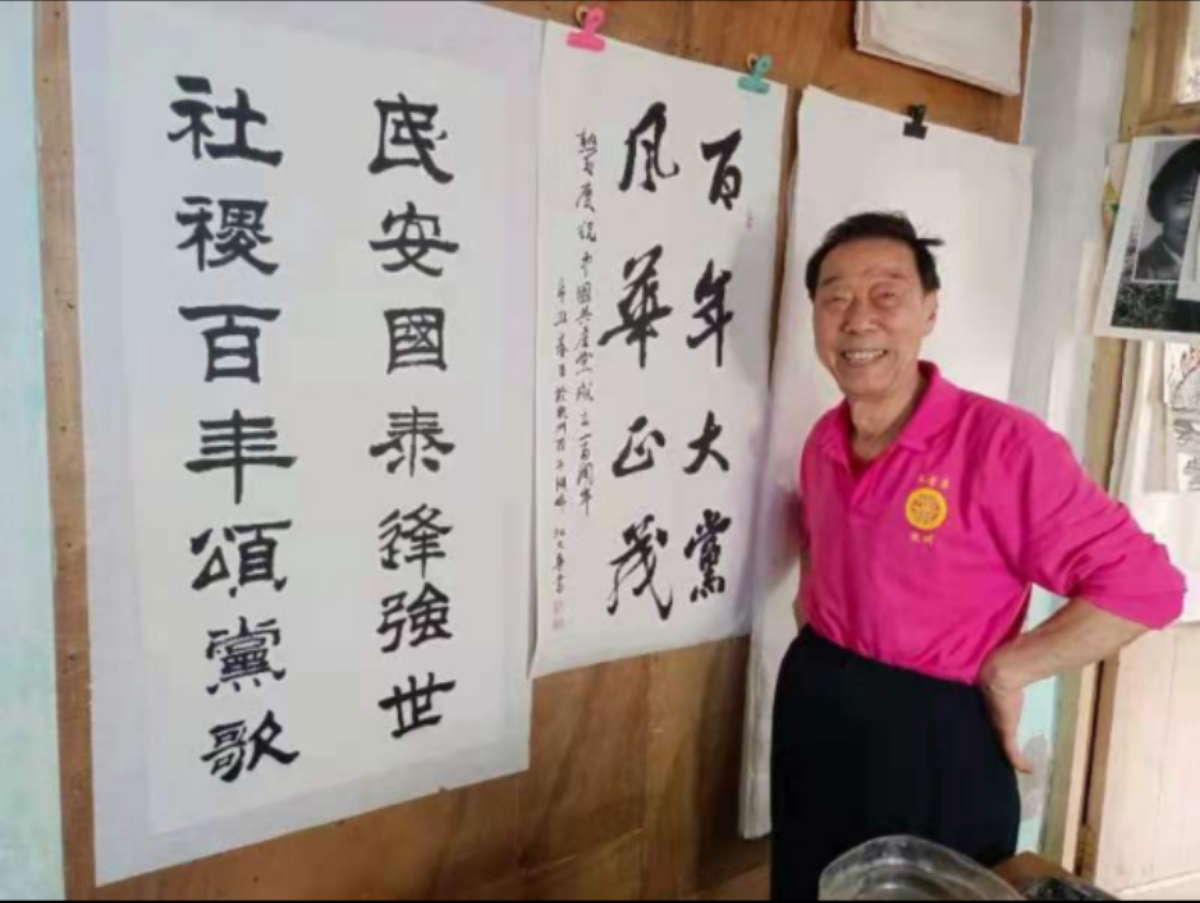 百年大黨
風華正茂
慶祝中國共産党成立一百周年
辛丑春日於杭州
民安國泰逢強世
社稷百年頌黨歌
杭州